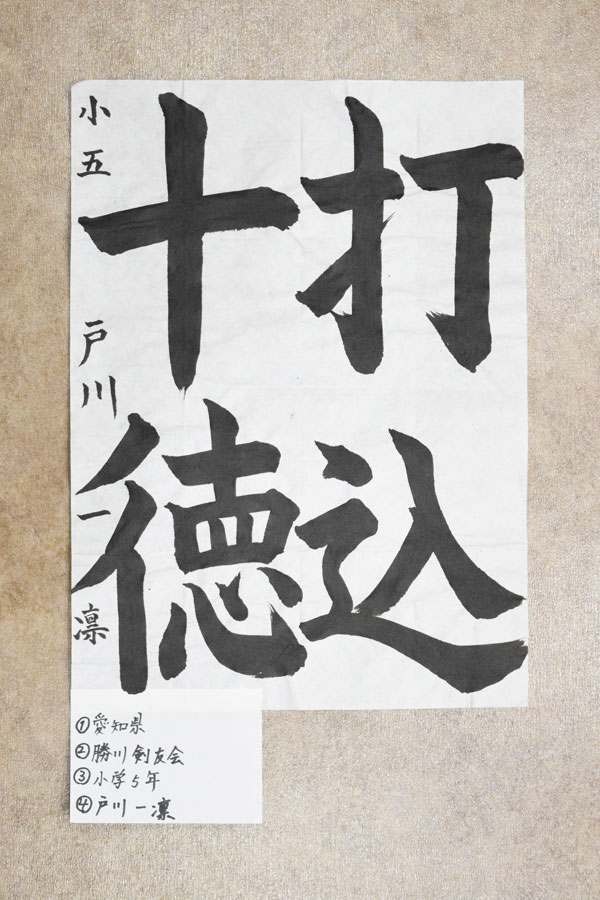 打込
十徳
小五 戸川一凛
①愛知県
②勝川剣友会
③小学5年
④戸川一凛